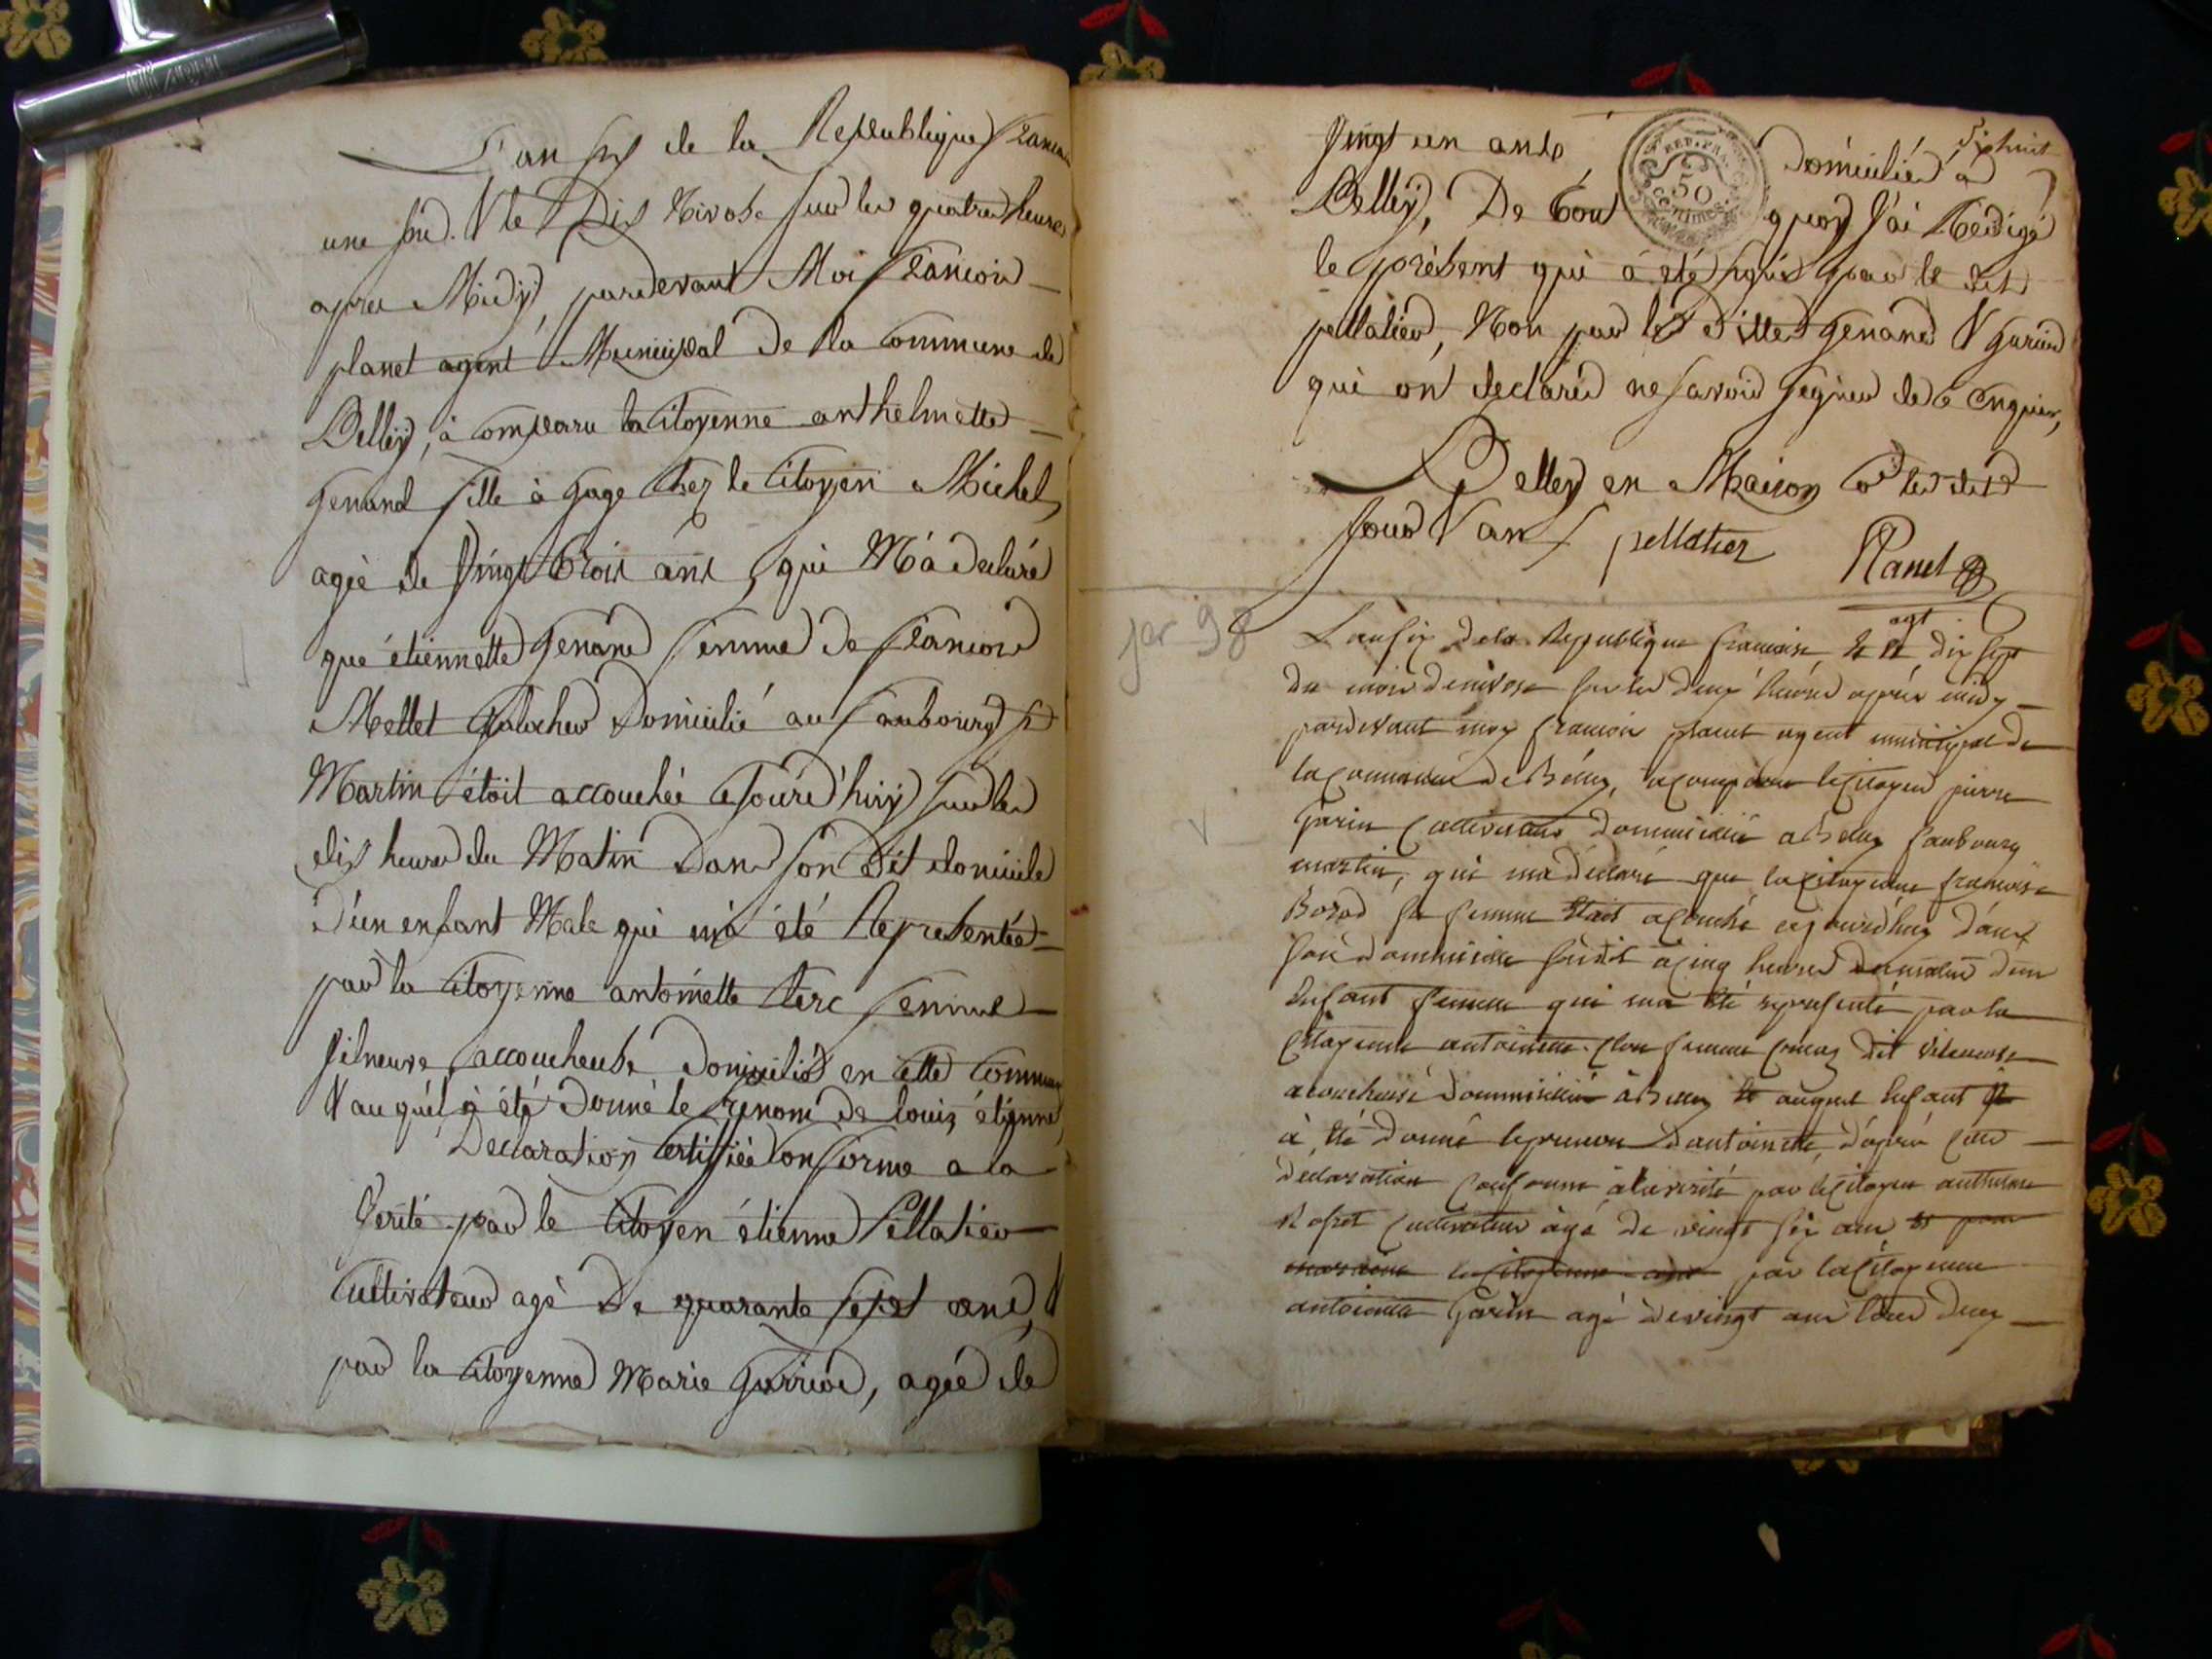 L'an six de la Republique francai
une ind. & le Dix Nivose sur les quatre heures
apres Midy, pardevant Moi francois
planet agent Municipal De la Commune de
Belley, à comparu la Citoyenne anthelmette
genand fille à gage chez le Citoyen Michel,
agée de Vingt trois ans, qui M'a declaré
que étiennette genand femme De francois
Mettet galocher Domicilié au faubourg st
Martin étoit accouchée cejourd'huy sur les
dix heures du Matin Dans son Dit domicile
D'un enfant Male qui m'à été Representée
par la Citoyenne antoinette Clerc femme
Vilneuve accoucheuse Domicilié en Cette Commun
& auquél à été Donné le prenom de louis étienne,
Declaration Certifiée Conforme a la
Verité par le Citoyen étienne Pellatier
Cultivateur agé De quarante sept ans, &
par la Citoyenne Marie gurrier, agée de
Vingt un ans Domiciliés à
Belley, De tout quoy J'ai Redigé
le présent qui à été signé par le dit
pellatier, Non par les Dittes genand & gurrier
qui ont declaré ne savoir signer de ce enquis,
Belley en Maison Cne les dits
Jour & an pellatier Planet
agt
Six huit
REP. FRA.
50
Centimes
jer 98
L'an six de la Republique francaise, et le dix sept
du mois de nivose sur les deux heures après midy
pardevant moy francois planet agent municipal de
la Commune de Belley, a comparu le Citoyen pierre
Garin Cultivateur domicilié a Belley faubourg
martin, qui ma déclaré que la Citoyenne francoise
Borod sa femme etait acouché cejourdhuy dans
son domicille susdit a cinq heures du matin d'un
Enfant femelle qui ma été represénté par la
Citoyenne antoinette femme dit Vileneuve
acoucheuse domicilié à Belley et auquel Enfant
à été donné le prenom d'antoinette, d'après cette
declaration Conforme à la verité par le Citoyen anthelme
Cultivateur agé de vingt six ans et pour
marraine la Citoyenne par la Citoyenne
antoinette Garin agé de vingt ans tous deux